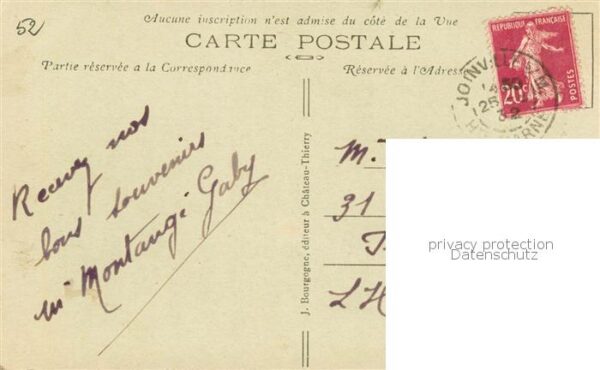 52
Aucune inscription n'est admise du côté de la Vue
CARTE POSTALE
Partie réservée a la Correspondance
Réservée à l'Adresse
RÉPUBLIQUE FRANÇAISE
20c
POSTES
JOINVILLE
25
32
Recevez nos
bons souvenirs
Montangé Gaby
J. Bourgogne, éditeur à Château-Thierry
M.
31
L H
privacy protection
Datenschutz